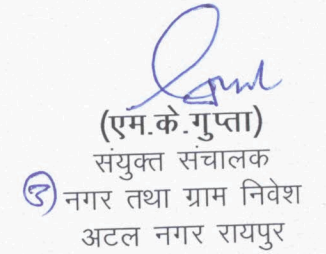 (एम.के.गुप्ता)
संयुक्त संचालक
नगर तथा ग्राम निवेश
अटल नगर रायपुर